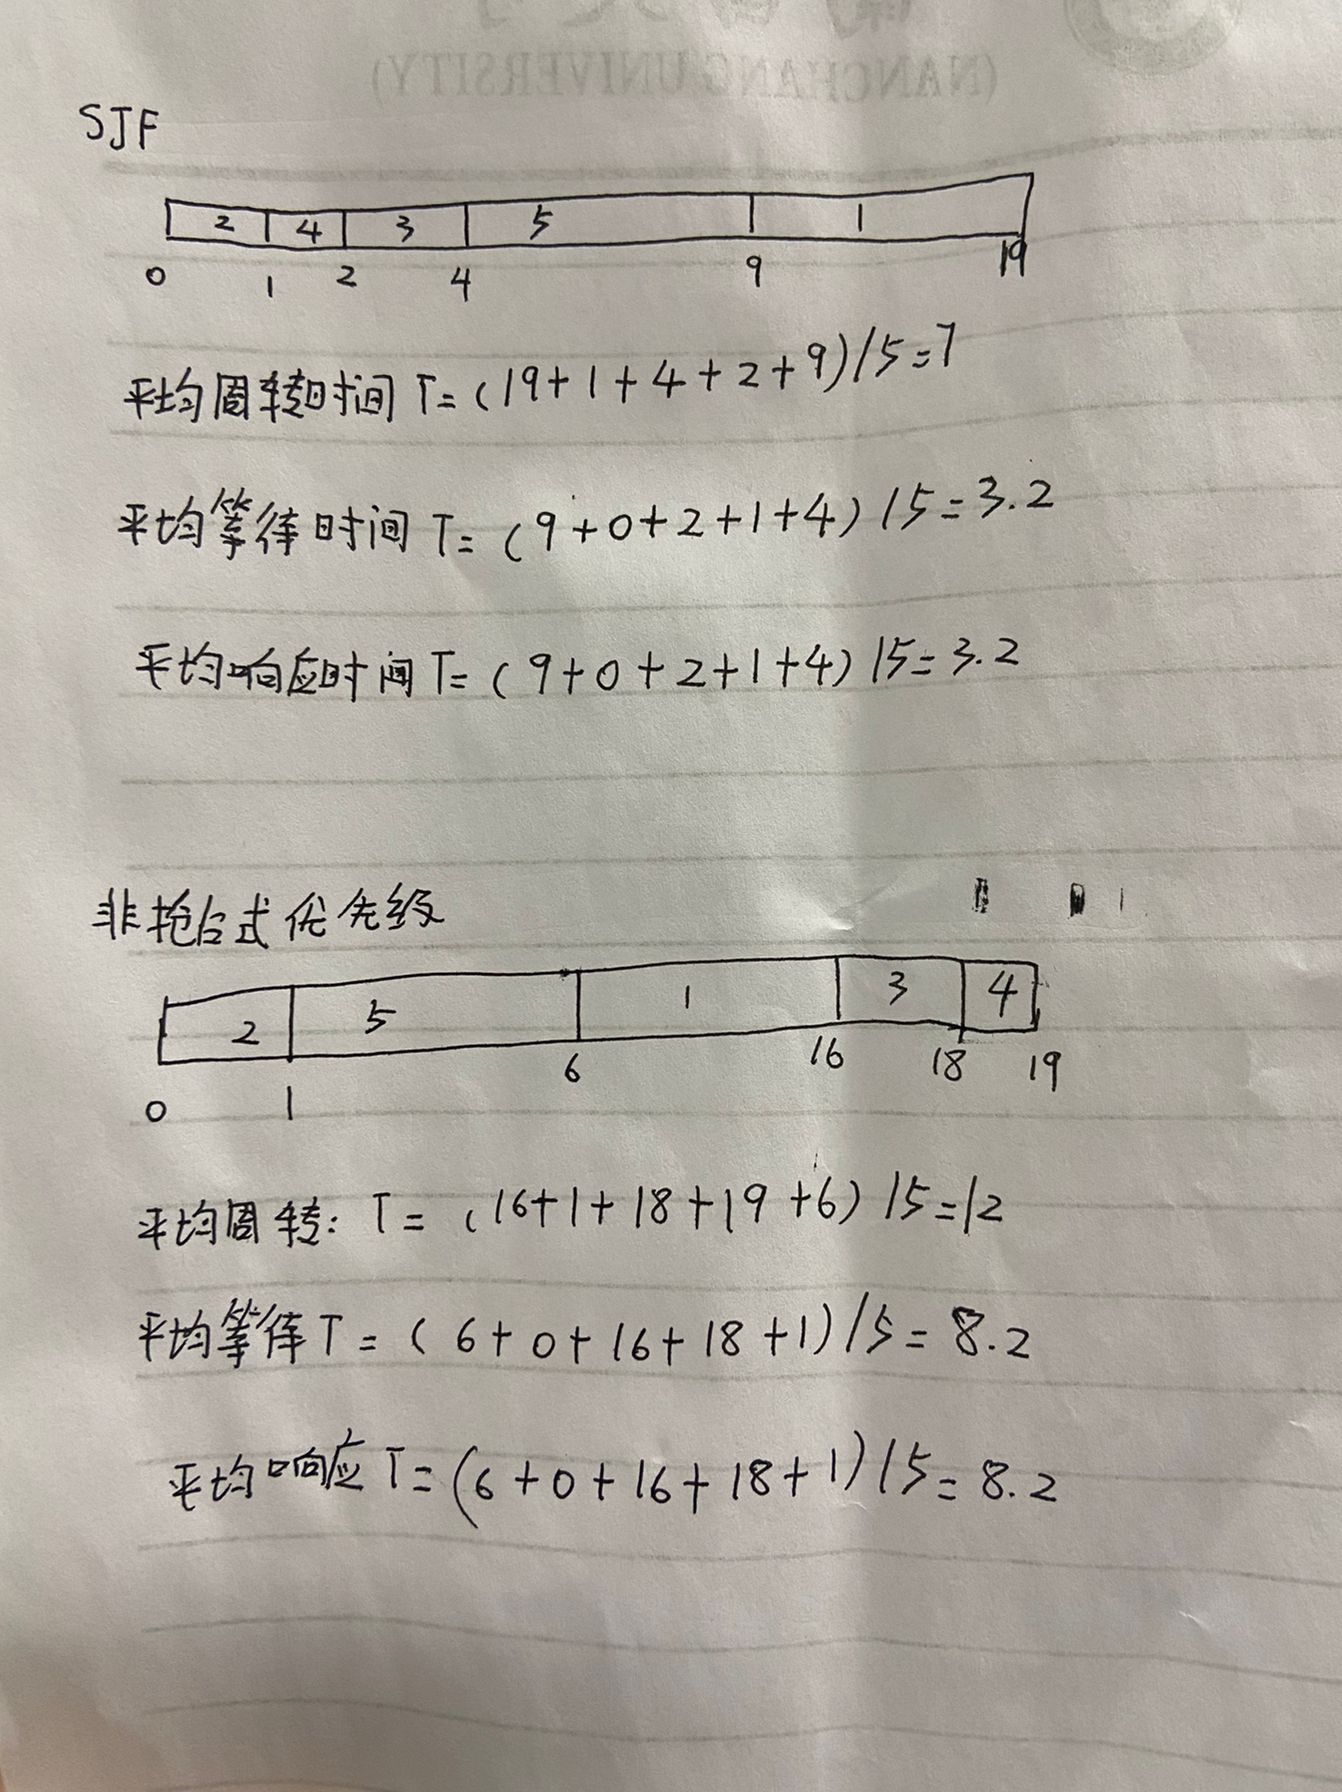 (NANCHANG UNIVERSITY)
SJF
2 4 3 5 1
0 1 2 4 9 19
平均周转时间 T=(19+1+4+2+9)/5=7
平均等待时间 T=(9+0+2+1+4)/5=3.2
平均响应时间 T=(9+0+2+1+4)/5=3.2
非抢占式优先级
2 5 1 3 4
0 1 6 16 18 19
平均周转: T=(16+1+18+19+6)/5=12
平均等待 T=(6+0+16+18+1)/5=8.2
平均响应 T=(6+0+16+18+1)/5=8.2